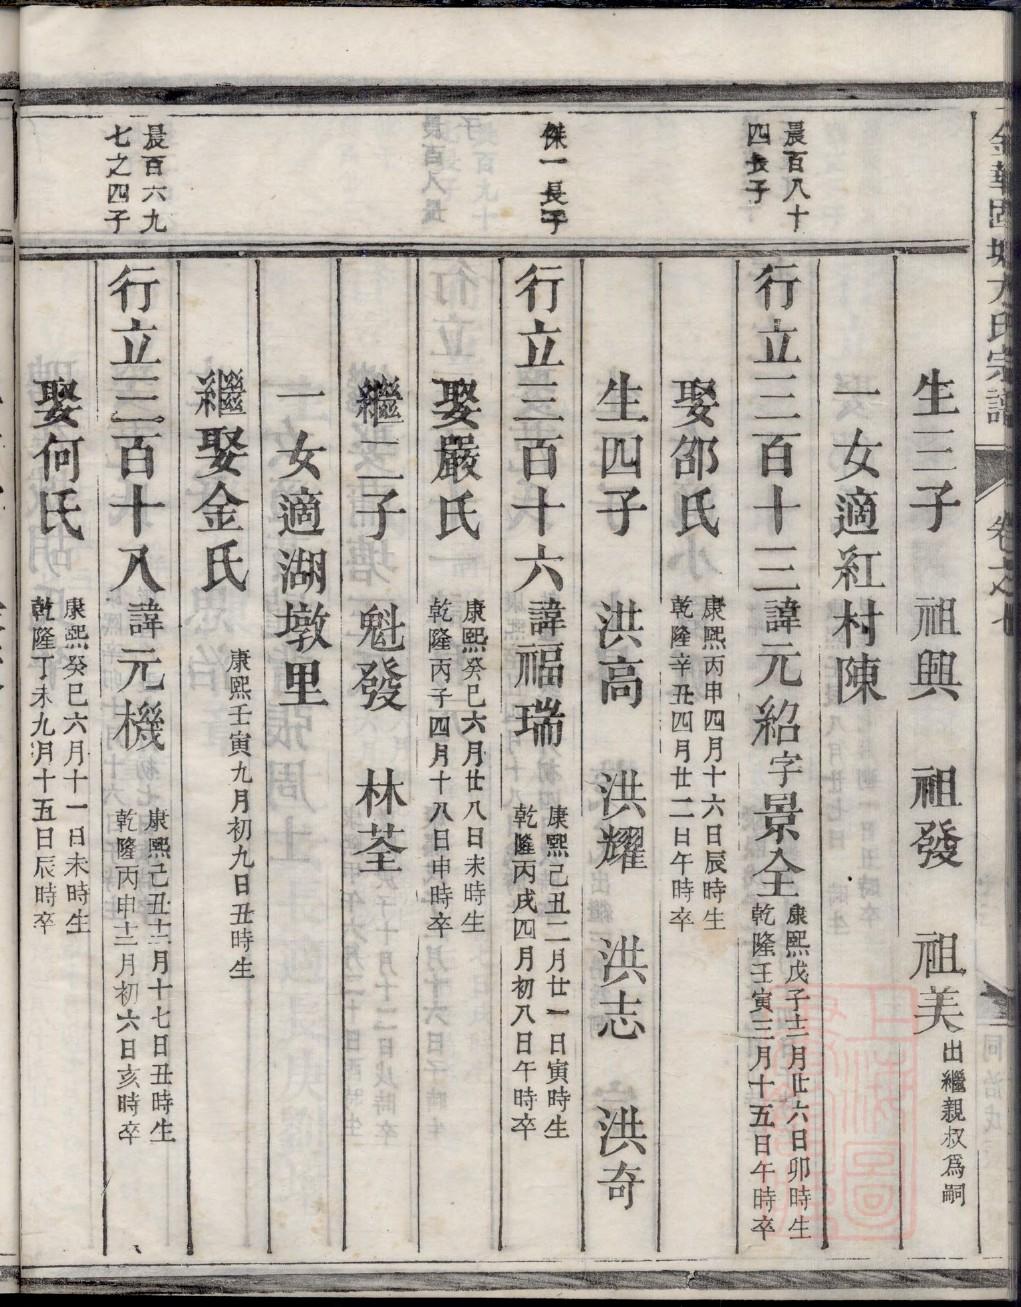 生三子　祖興　祖發　祖美出繼親叔爲嗣
一女適紅村陳
晨百八十
四長子
行立三百十三諱元紹字景全
康熙戊子十二月廿六日卯時生
乾隆壬寅三月十五日午時卒
娶邵氏
康熙丙申四月十六日辰時生
乾隆辛丑四月廿二日午時卒
生四子　洪高　洪耀　洪志　洪奇
傑一長子
行立三百十六諱福瑞
康熙己丑二月廿一日寅時生
乾隆丙戌四月初八日午時卒
娶嚴氏
康熙癸巳六月廿八日未時生
乾隆丙子四月十八日申時卒
繼二子　魁發　林荃
一女適湖墩里
繼娶金氏
康熙壬寅九月初九日丑時生
晨百六九
七之四子
行立三百十八諱元機
康熙己丑十二月十七日丑時生
乾隆丙申十二月初六日亥時卒
娶何氏
康熙癸巳六月十一日未時生
乾隆丁未九月十五日辰時卒